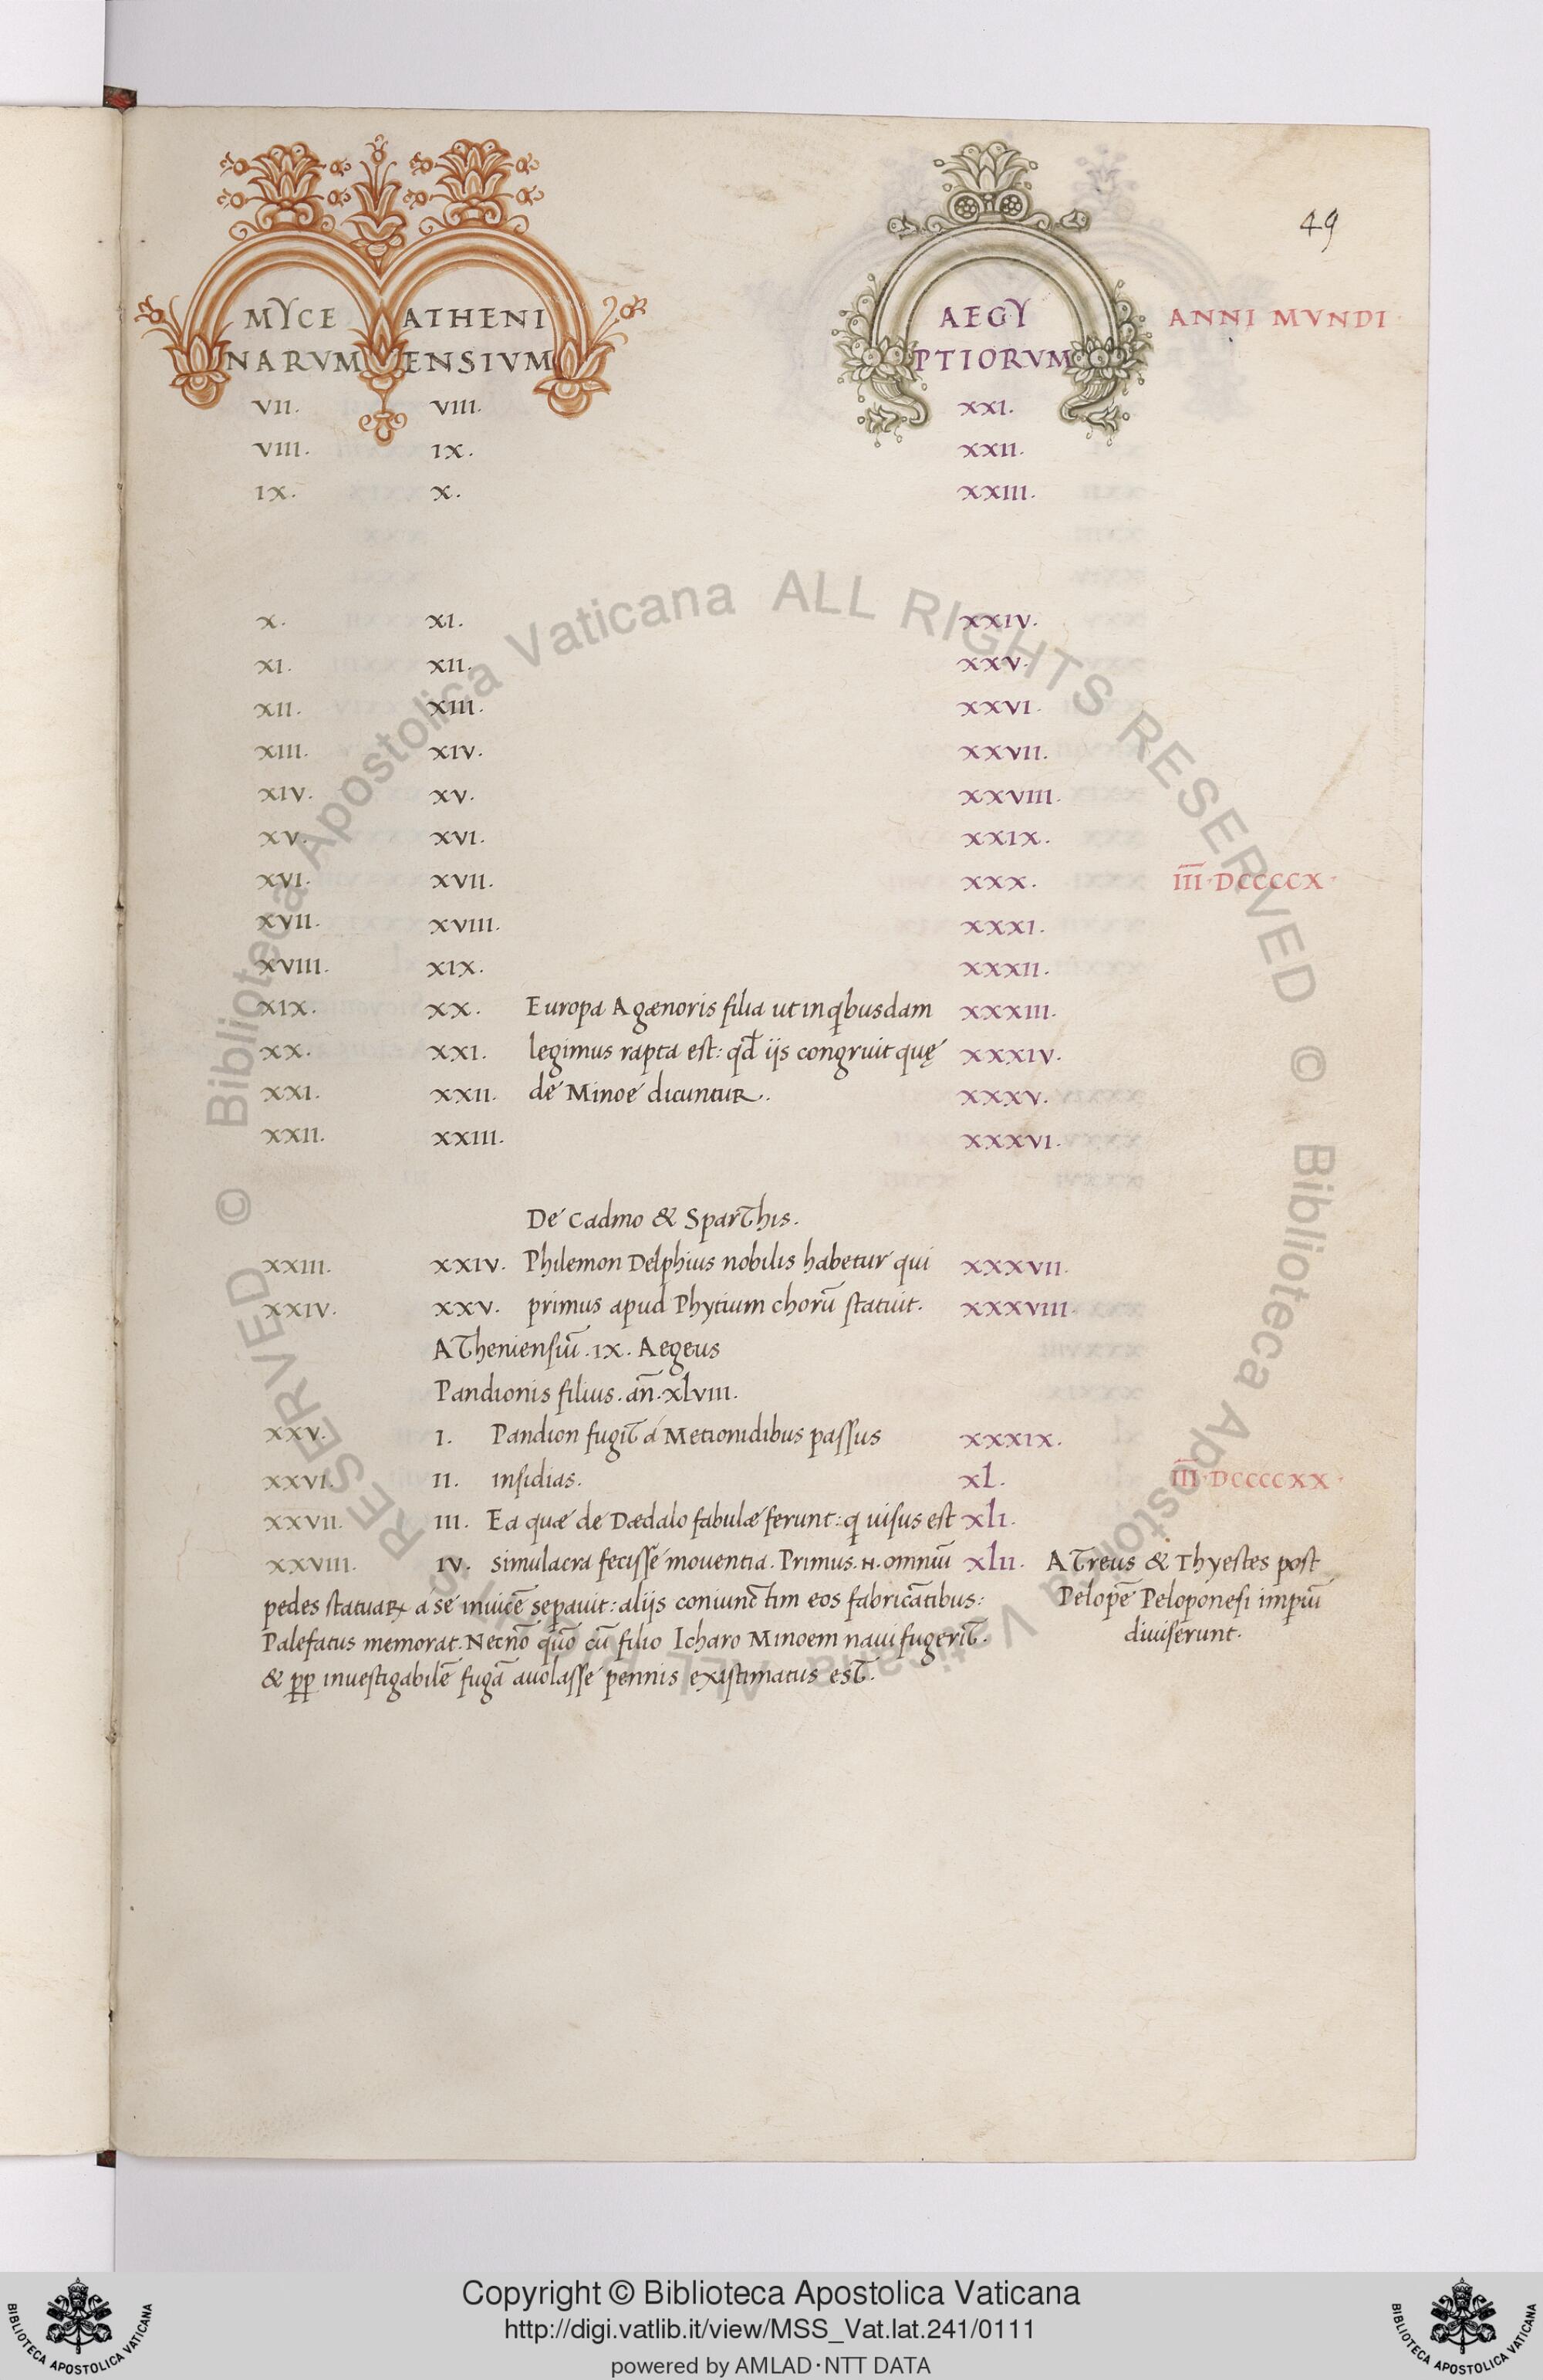 49
MYCE ATHENI AEGY ANNI MVNDI
NARVM ENSIVM PTIORVM
VII. VIII. XXI.
VIII. IX. XXII.
IX. X. XXIII.
X. XI. XXIV.
XI. XII. XXV.
XII. XIII. XXVI.
XIII. XIV. XXVII.
XIV. XV. XXVIII.
XV. XVI. XXIX.
XVI. XVII. XXX. I̅I̅I̅·DCCCCX·
XVII. XVIII. XXXI.
XVIII. XIX. XXXII.
XIX. XX. Europa Agænoris filia ut in qbusdam XXXIII.
XX. XXI. legimus rapta est: qd̄ ijs congruit quę XXXIV.
XXI. XXII. de Minoe dicuntur. XXXV.
XXII. XXIII. XXXVI.
De Cadmo & Sparthis.
XXIII. XXIV. Philemon Delphius nobilis habetur qui XXXVII.
XXIV. XXV. primus apud Phytium chorū statuit. XXXVIII.
Atheniensiū .IX. Aegeus
Pandionis filius. an̄. xlviii.
XXV. I. Pandion fugit á Metionidibus passus XXXIX.
XXVI. II. insidias. xl. I̅I̅I̅·DCCCCXX·
XXVII. III. Ea quæ de Dædalo fabulæ ferunt: q uisus est xli.
XXVIII. IV. simulacra fecisse mouentia. Primus .N. omniū xlii. Atreus & Thyestes post
pedes statuaꝝ á se inuicē sepauit: alijs coniunctim eos fabricātibus: Pelopē Peloponesi impiū
Palefatus memorat. Necnō quō cū filio Icharo Minoem naui fugerit. diuiserunt.
& pp inuestigabilē fugā auolasse pennis existimatus est.
© Biblioteca Apostolica Vaticana ALL RIGHTS RESERVED © Biblioteca Apostolica Vaticana ALL RIGHTS RESERVED
Copyright © Biblioteca Apostolica Vaticana
http://digi.vatlib.it/view/MSS_Vat.lat.241/0111
powered by AMLAD·NTT DATA
BIBLIOTECA APOSTOLICA VATICANA
BIBLIOTECA APOSTOLICA VATICANA